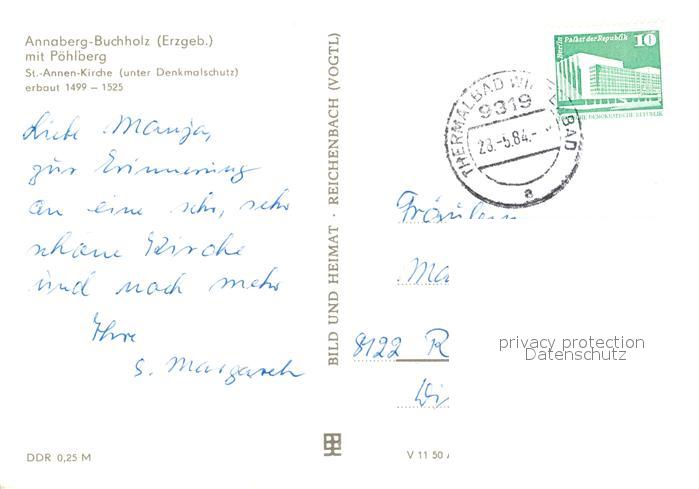 Annaberg-Buchholz (Erzgeb.)
mit Pöhlberg
St.-Annen-Kirche (unter Denkmalschutz)
erbaut 1499 – 1525
Liebe Manja,
zur Erinnerung
an eine sehr, sehr
schöne Kirche
und noch mehr
Ihre
S. Margareth
DDR 0,25 M
BILD UND HEIMAT · REICHENBACH (VOGTL)
V 11 50
Berlin Palast der Republik
10
DEMOKRATISCHE REPUBLIK
THERMALBAD WI BAD
9319
23.-5.84.-
a
Fräulein
Ma
8122 R
Wi
privacy protection
Datenschutz